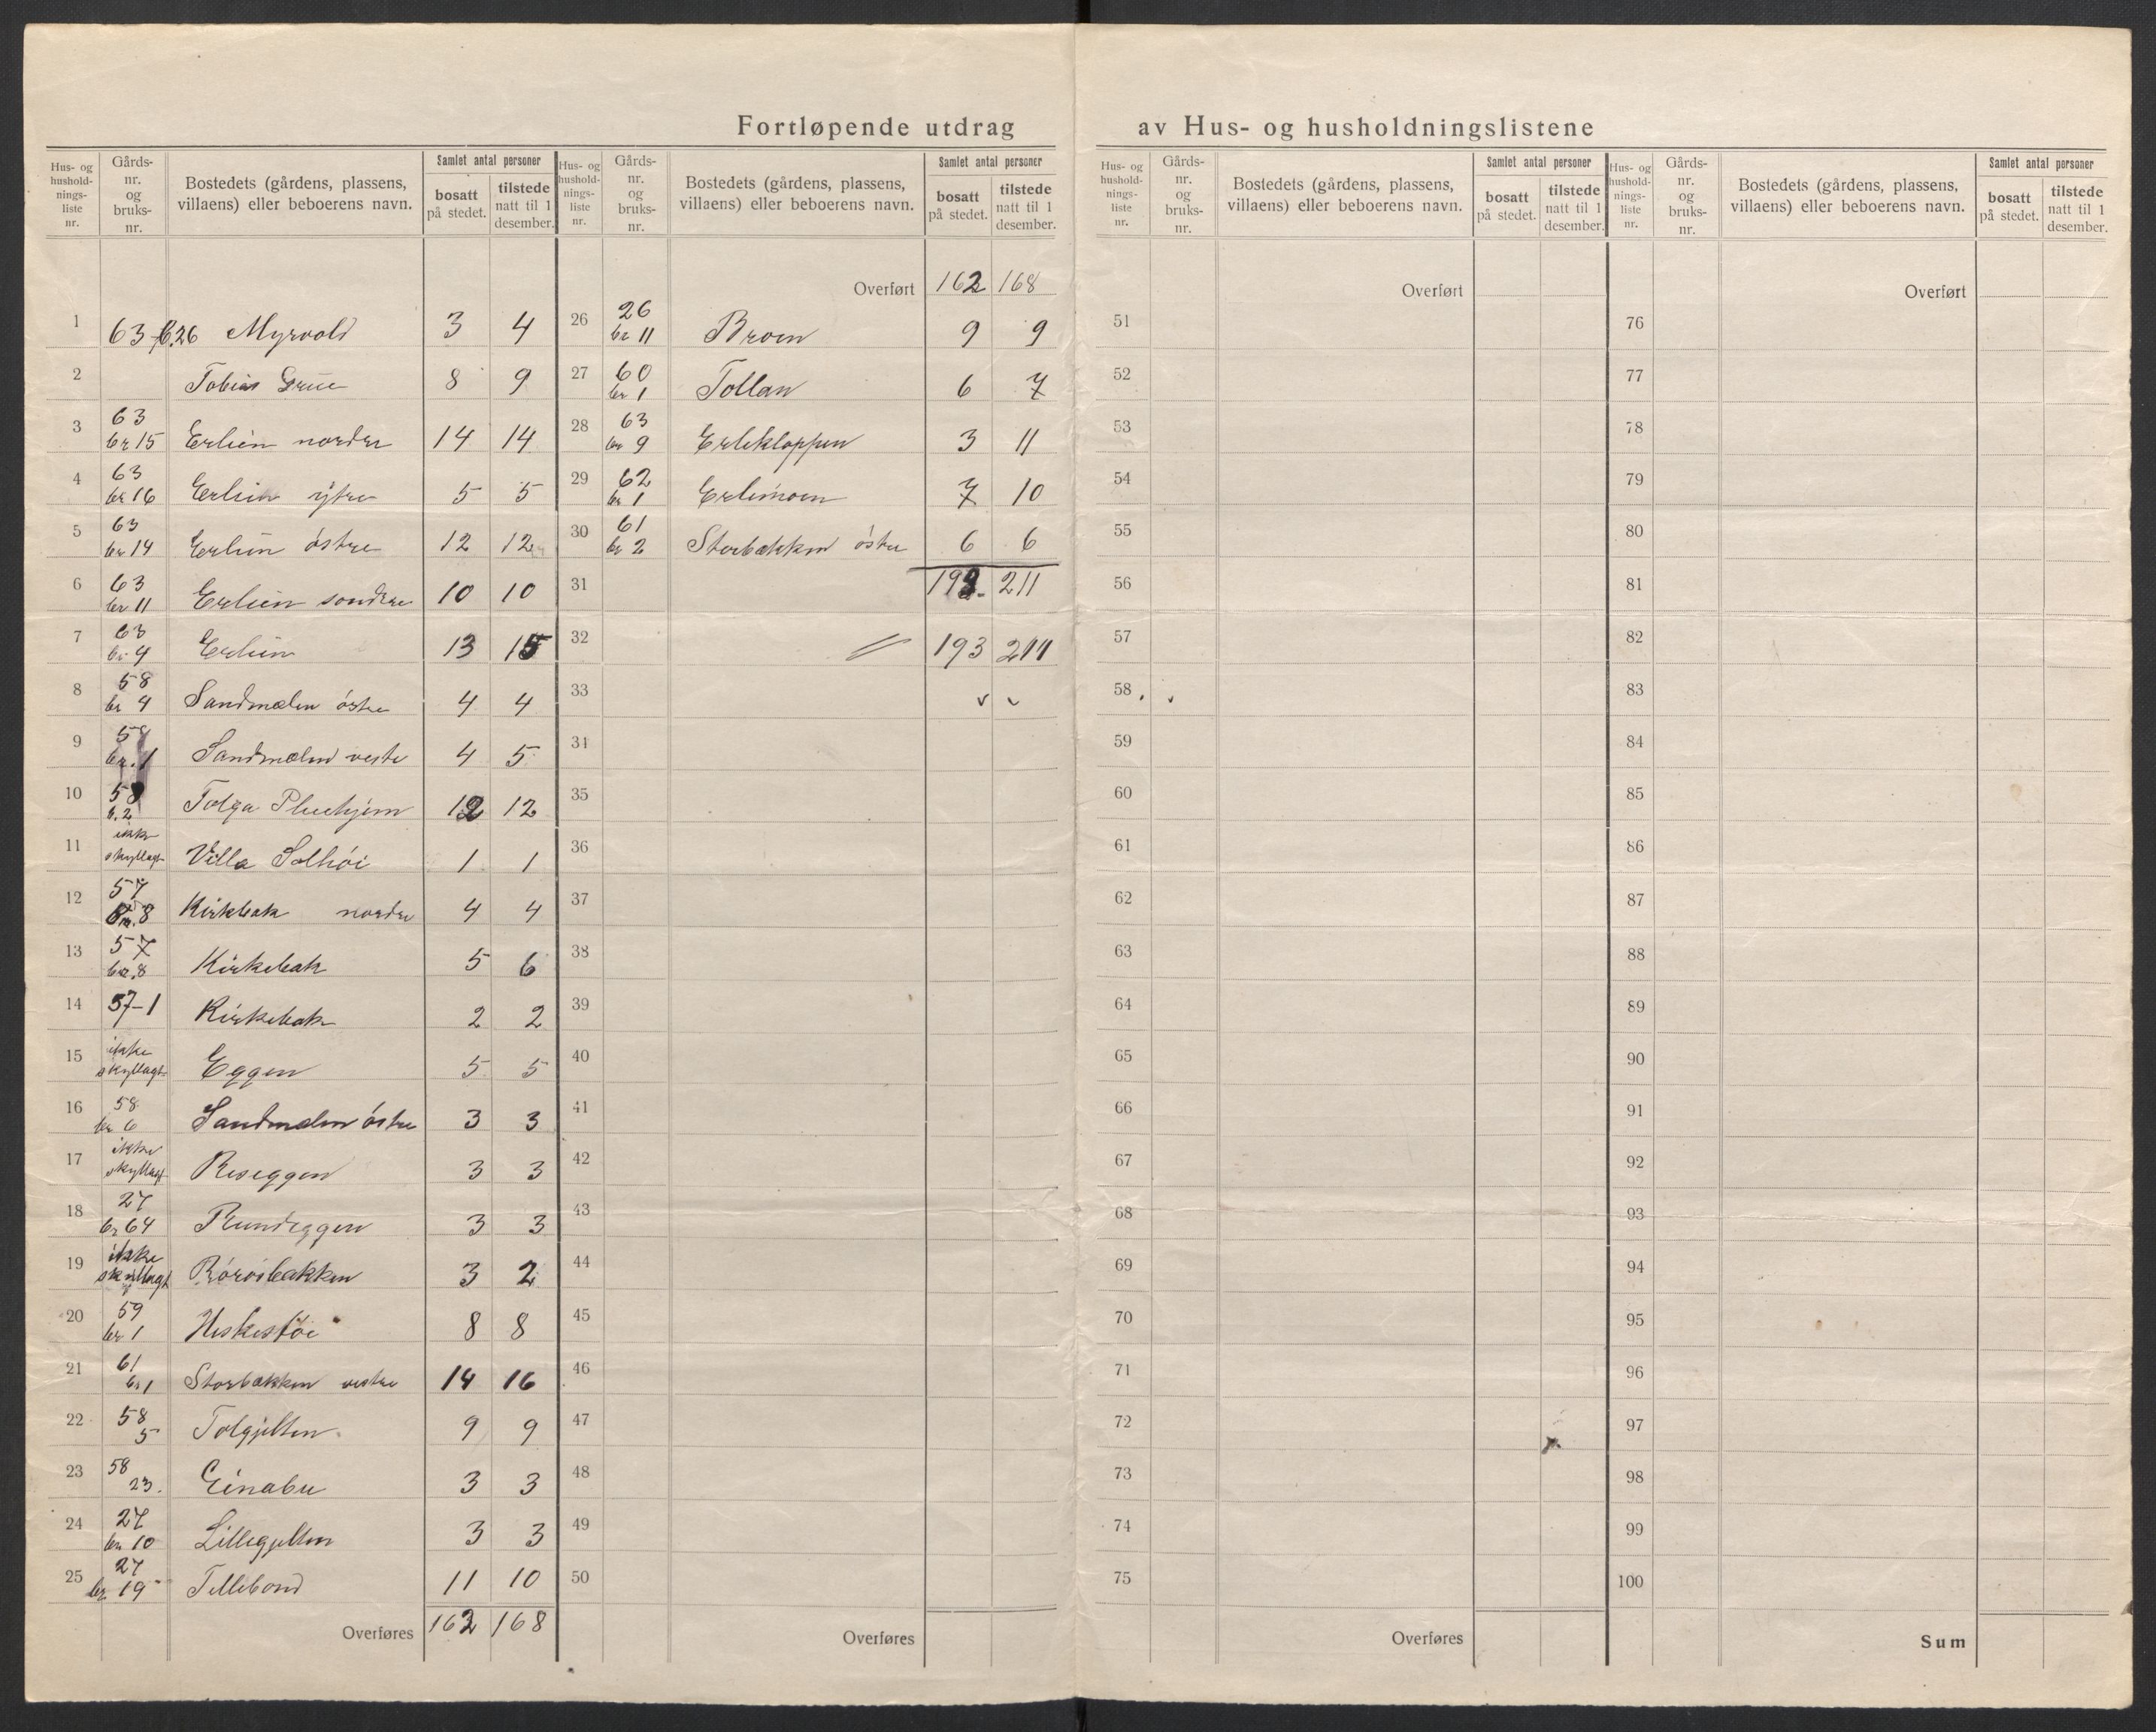 Fortløpende utdrag av Hus- og husholdningslistene
Hus- og husholdnings- liste nr. | Gårds- nr. og bruks- nr. | Bostedets (gårdens, plassens, villaens) eller beboerens navn. | Samlet antal personer | bosatt på stedet. | tilstede natt til 1 desember.
1 63-b.26 Myrvold 3 4
2 Tobias Grue 8 9
3 63 br 15 Erlien nordre 14 14
4 63 br 16 Erlien ytre 5 5
5 63 br 14 Erlien östre 12 12
6 63 br 11 Erlien söndre 10 10
7 63 br 4 Erlien 13 15
8 58 br 4 Sandmælen östre 4 4
9 58 br. 1 Sandmælen vestre 4 5
10 58 b. 2 Tolga Pleiehjem 12 12
11 ikke skyllagt Villa Solhöi 1 1
12 57 br. 8 Kirkbak nordre 4 4
13 57 br. 8 Kirkebak 5 6
14 57-1 Kirkebak 2 2
15 ikke skyllagt Eggen 5 5
16 58 br 6 Sandmælen östre 3 3
17 ikke skyllagt Reseggen 3 3
18 27 br 64 Rundeggen 3 3
19 ikke skyllagt Rörosbakken 3 2
20 59 br 1 Heskestöe 8 8
21 61 br 1 Storbækken vestre 14 16
22 58 5 Tolgjelten 9 9
23 58 23. Einabu 3 3
24 27 br 10 Lillegjelten 3 3
25 27 br 19 Tellebond 11 10
Overføres 162 168
Hus- og husholdnings- liste nr. | Gårds- nr. og bruks- nr. | Bostedets (gårdens, plassens, villaens) eller beboerens navn. | Samlet antal personer | bosatt på stedet. | tilstede natt til 1 desember.
Overført 162 168
26 26 br 11 Broen 9 9
27 60 br 1 Tollan 6 7
28 63 br 9 Erlikloppen 3 11
29 62 br 1 Erlimoen 7 10
30 61 br 2 Storbækken östre 6 6
31 193 211
32 193 211
33
34
35
36
37
38
39
40
41
42
43
44
45
46
47
48
49
50
Overføres
Hus- og husholdnings- liste nr. | Gårds- nr. og bruks- nr. | Bostedets (gårdens, plassens, villaens) eller beboerens navn. | Samlet antal personer | bosatt på stedet. | tilstede natt til 1 desember.
Overført
51
52
53
54
55
56
57
58
59
60
61
62
63
64
65
66
67
68
69
70
71
72
73
74
75
Overføres
Hus- og husholdnings- liste nr. | Gårds- nr. og bruks- nr. | Bostedets (gårdens, plassens, villaens) eller beboerens navn. | Samlet antal personer | bosatt på stedet. | tilstede natt til 1 desember.
Overført
76
77
78
79
80
81
82
83
84
85
86
87
88
89
90
91
92
93
94
95
96
97
98
99
100
Sum